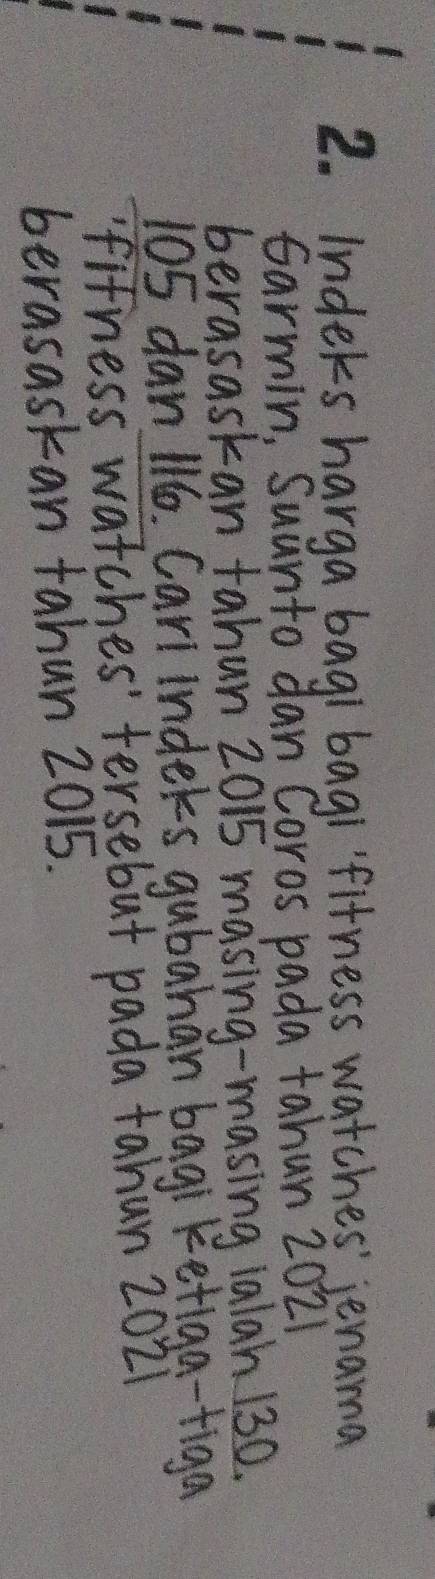 2. Indeks harga bagi bagi 'fitness watches' jenama
Garmin, Suunto dan Coros pada tahun 2021
berasaskan tahun 2015 masing-masing ialah 130.
105 dan 116. Cari indeks gubahan bagi ketiga-tiga
'fitness watches' tersebut pada tahun 2021
berasaskan tahun 2015.